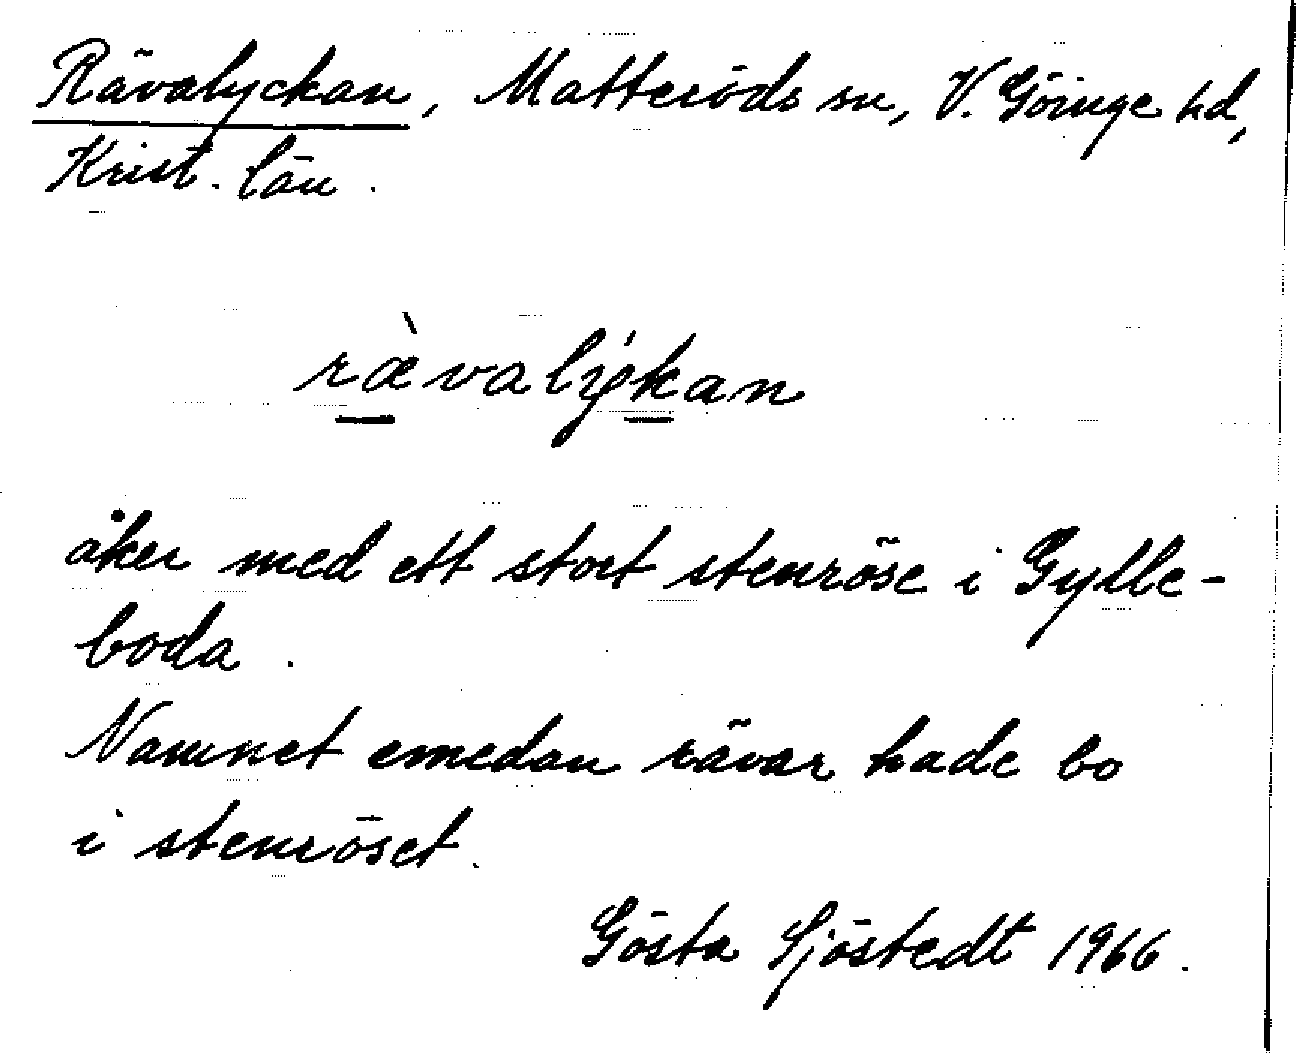 Rävalyckan, Matteröds sn, V. Göinge hd,
Krist. län.
ræ̀valýkan
åker med ett stort stenröse i Gylle-
boda.
Namnet emedan rävar hade bo
i stenröset.
Gösta Sjöstedt 1966.